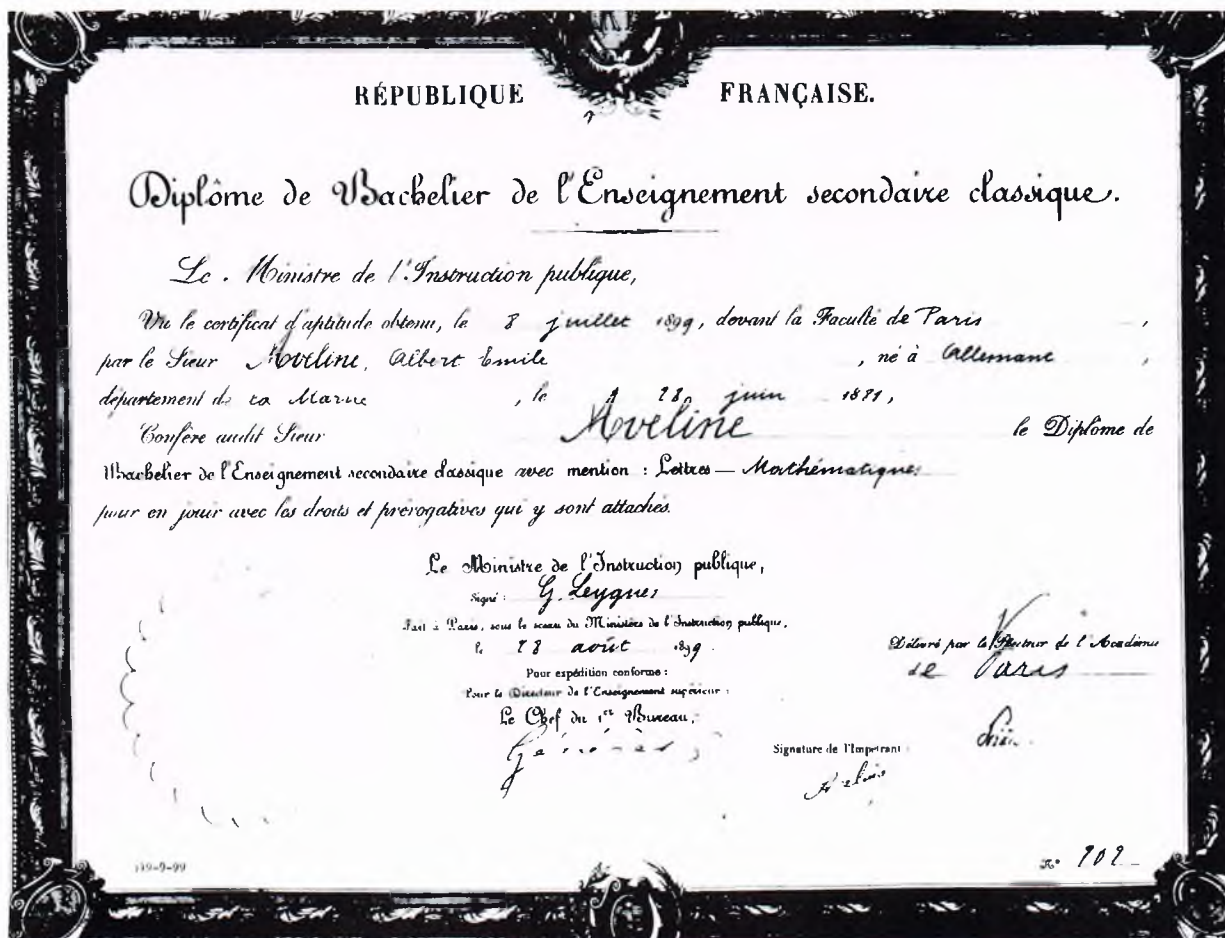 RÉPUBLIQUE FRANÇAISE.
Diplôme de Bachelier de l'Enseignement secondaire classique.
Le Ministre de l'Instruction publique,
Vu le certificat d'aptitude obtenu, le 8 juillet 1899, devant la Faculté de Paris ,
par le Sieur Moveline, Albert Emile , né à Allemant ,
département de la Marne , le juin 1881,
Confère audit Sieur Moveline le Diplôme de
Bachelier de l'Enseignement secondaire classique avec mention : Lettres — Mathématiques
pour en jouir avec les droits et prérogatives qui y sont attachés.
Le Ministre de l'Instruction publique,
Signé : G. Leygues
Fait à Paris, sous le sceau du Ministère de l'Instruction publique,
le 28 août 1899.
Pour expédition conforme :
Pour le Directeur de l'Enseignement supérieur :
Le Chef du 1er Bureau,
Délivré par le Recteur de l'Académie
de Paris
Signature de l'Impétrant :
139-9-99
N°